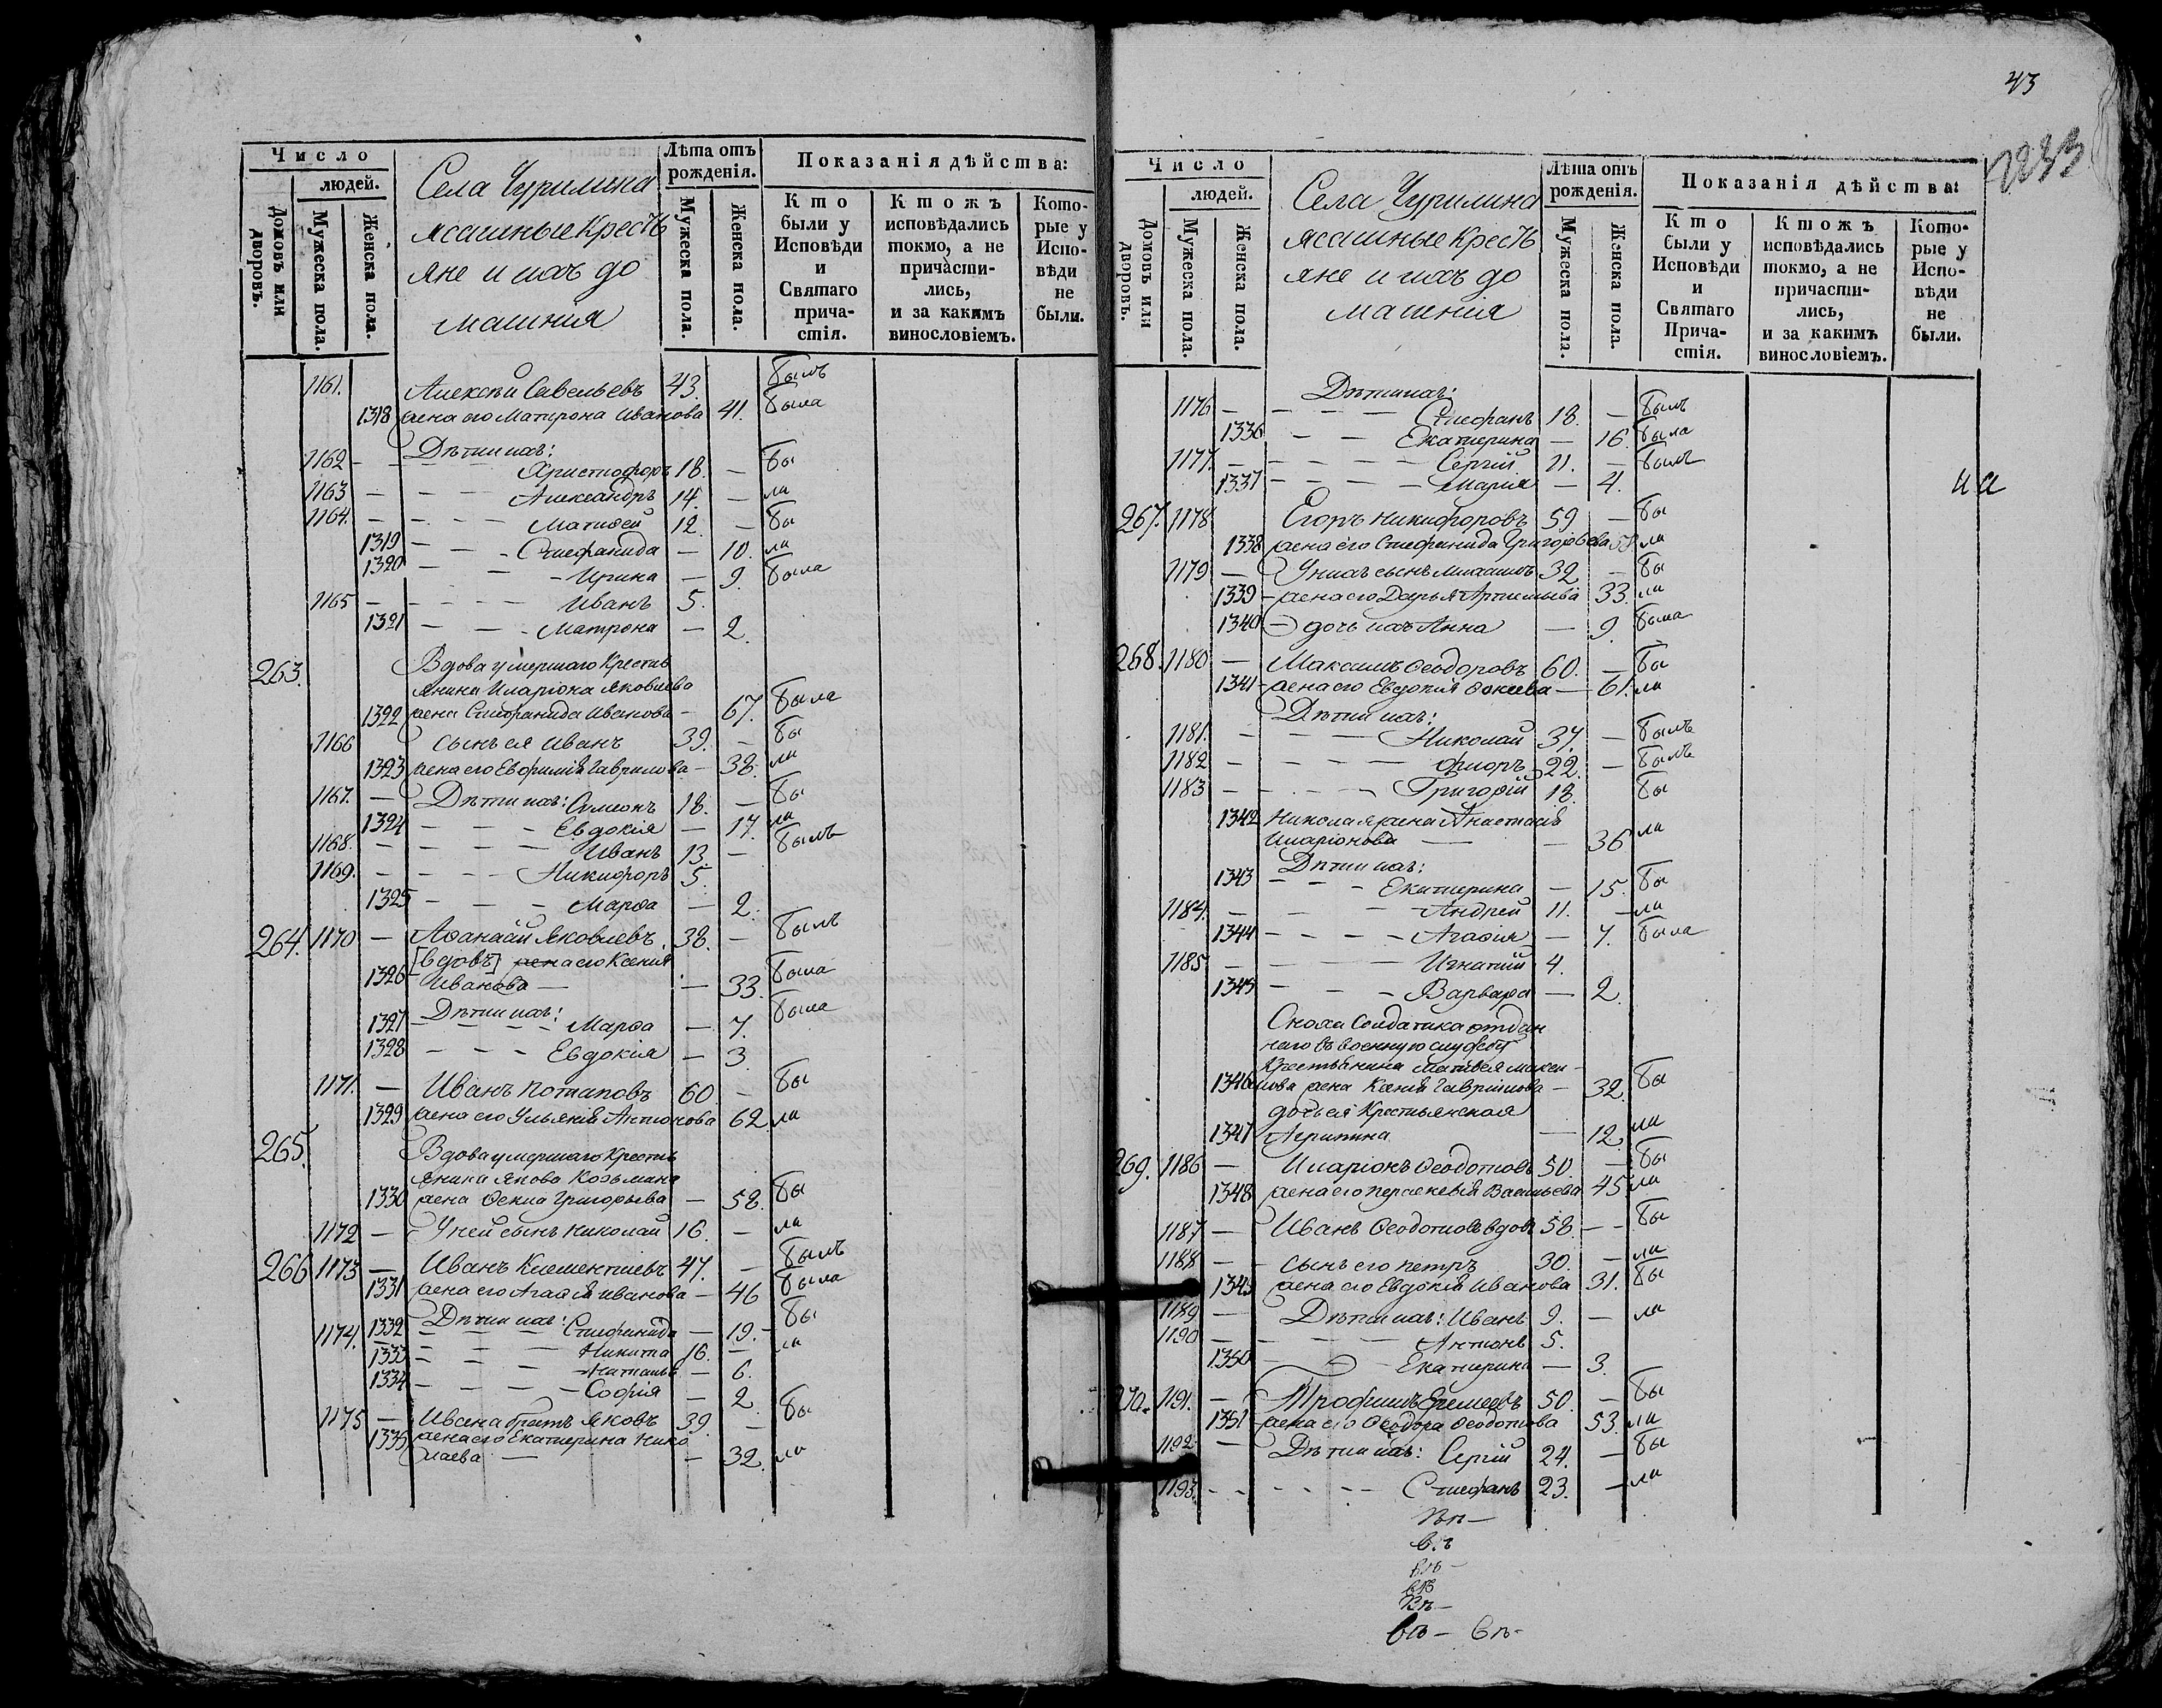 Число
людей.
Домовъ или дворовъ.
Мужеска пола.
Женска пола.
Села Чурилина
ясашные кресть
яне и ихъ до
машнія
Лѣта отъ рожденія.
Мужеска пола.
Женска пола.
Показанія дѣйства:
Кто были у Исповѣди и Святаго причастія.
Ктожъ исповѣдались токмо, а не причастились, и за какимъ винословіемъ.
Которые у Исповѣди не были.
1161. Алексѣй Савельевъ 43. былъ
1318 жена его Матрона Иванова 41. была
Дѣти ихъ:
1162 — Христофоръ 18. — бы
1163 — Александръ 14. — ли
1164. — Матвей 12. — бы
1319 — Стефанида — 10. ли
1320 — Ирина — 9. была
1165 — Иванъ 5.
1321 — Матрона — 2.
263. Вдова умершаго крестья
янина Иларіона Яковлева
1322 жена Стефанида Иванова — 67. была
1166 сынъ ея Иванъ 39. — бы
1323 жена его Евфимія Гаврилова — 38. ли
1167. — Дѣти ихъ: Симеонъ 18. — бы
1324 — Евдокія — 17. ли
1168. — Иванъ 13. — былъ
1169. — Никифоръ 5.
1325 — Марѳа — 2.
264. 1170 — Аѳанасій Яковлевъ 38. — былъ
[вдовъ] жена его Ксенія
1326 Иванова — — 33. была
Дѣти ихъ:
1327 — Марѳа — 7. была
1328 — Евдокія — 3.
1171. — Иванъ Потаповъ 60. — бы
1329 жена его Ульянія Антонова 62. ли
265. Вдова умершаго крестья
янина Якова Козьмина
1330 жена Ѳекла Григорьева — 58. бы
1172 — У ней сынъ Николай 16. — ли
266 1173 — Иванъ Клементьевъ 47. — былъ
1331 жена его Агаѳія Иванова — 46 была
Дѣти ихъ:
1332 — Стефанида — 19. — бы
1174. — Никита 16. — ли
1333 — Наталья — 6.
1334 — Софія — 2
1175 — Ивана братъ Яковъ 39. — бы
1335 жена его Екатерина Нико
лаева — — 32. ли
43
1233
Число
людей.
Домовъ или дворовъ.
Мужеска пола.
Женска пола.
Села Чурилина
ясашные кресть
яне и ихъ до
машнія
Лѣта отъ рожденія.
Мужеска пола.
Женска пола.
Показанія дѣйства:
Кто были у Исповѣди и Святаго Причастія.
Ктожъ исповѣдались токмо, а не причастились, и за какимъ винословіемъ.
Которые у Исповѣди не были.
Дѣти ихъ:
1176 — Стефанъ 18. — былъ
1336 — Екатерина — 16. была
1177. — Сергій 11. — былъ
1337 — Марія — 4.
267. 1178 Егоръ Никифоровъ 59 — бы
1338 жена его Стефанида Григорьева 58 ли
1179 — У нихъ сынъ 32 — бы
1339 — жена его Дарья Артемьева 33. ли
1340 — дочь ихъ Анна — 9. была
268. 1180 — Максимъ Ѳеодоровъ 60. — бы
1341 — жена его Евдокія — 61. ли
Дѣти ихъ:
1181. — Николай 37. — былъ
1182 — Флоръ 22. — былъ
1183 — Григорій 18. бы
1342 Николая жена Анастасія
Иларіонова — — 36 ли
Дѣти ихъ:
1343 — Екатерина — 15. бы
1184. — Андрей 11. — ли
1344 — Агаѳія — 7. была
1185 — Игнатій 4.
1345 — Варвара — 2.
Сноха солдатка отдан
наго въ военную службу
крестьянина Матвея Макси
1346 мова жена Ксенія Гаврилова — 32. бы
дочь ея крестьянская
1347 Агрипина — 12. ли
269. 1186 — Иларіонъ Ѳеодотовъ 50. — бы
1348 жена его Перскевія Васильева 45 ли
1187 — Иванъ Ѳеодотовъ вдов 58. — бы
1188 — сынъ его Петръ 30. — ли
1349 жена его Евдокія Иванова 31. бы
1189 — Дѣти ихъ: Иванъ 9. — ли
1190 — Антонъ 5.
1350 — Екатерина — 3.
270. 1191. — Трофимъ Еремеевъ 50. — бы
1351 жена его Ѳеодора Ѳеодотова 53. ли
1192 — Дѣти ихъ: Сергій 24. — бы
1193. — Стефанъ 23. — ли